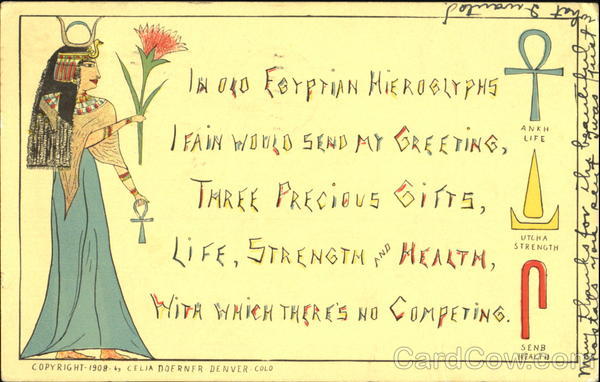 IN OLD EGYPTIAN HIEROGLYPHS
I FAIN WOULD SEND MY GREETING,
THREE PRECIOUS GIFTS,
LIFE, STRENGTH AND HEALTH,
WITH WHICH THERE'S NO COMPETING.
ANKH
LIFE
UTCHA
STRENGTH
SENB
HEALTH
COPYRIGHT-1908- by CELIA DOERNER DENVER-COLO
Many thanks for the beautiful
you sent. Twas just
what I wanted.
CardCow.com